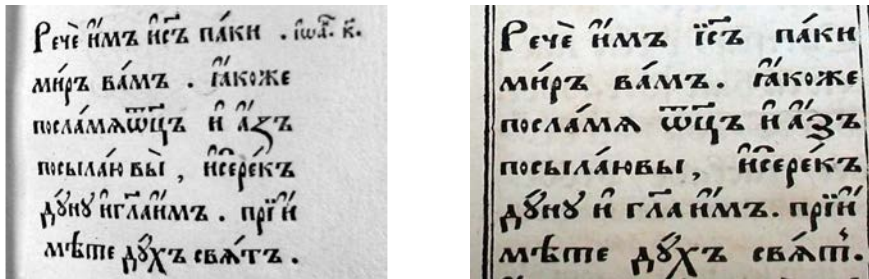 Речѐ и҆̀мъ и҆с҃ъ па́ки . і҆ѡа҃. к҃.
ми́ръ ва́мъ . ꙗ҆́коже
посла́мѧѿц҃ъ и҆ а҆́зъ
посыла́ю вы̀ , и҆сере́къ
дꙋ́нꙋ и҆гл҃аи҆́мъ . прїи҆́
мѣ́те дꙋ́хъ свѧ́тъ .
Речѐ и҆̀мъ і҆с҃ъ па́ки
ми́ръ ва́мъ . ꙗ҆́коже
посла́мѧ ѿц҃ъ и҆ а҆́зъ
посыла́ювы , и҆сере́къ
дꙋ́нꙋ и҆ гл҃а и҆́мъ . прїи҆́
мѣте дꙋ́хъ свѧ́т .